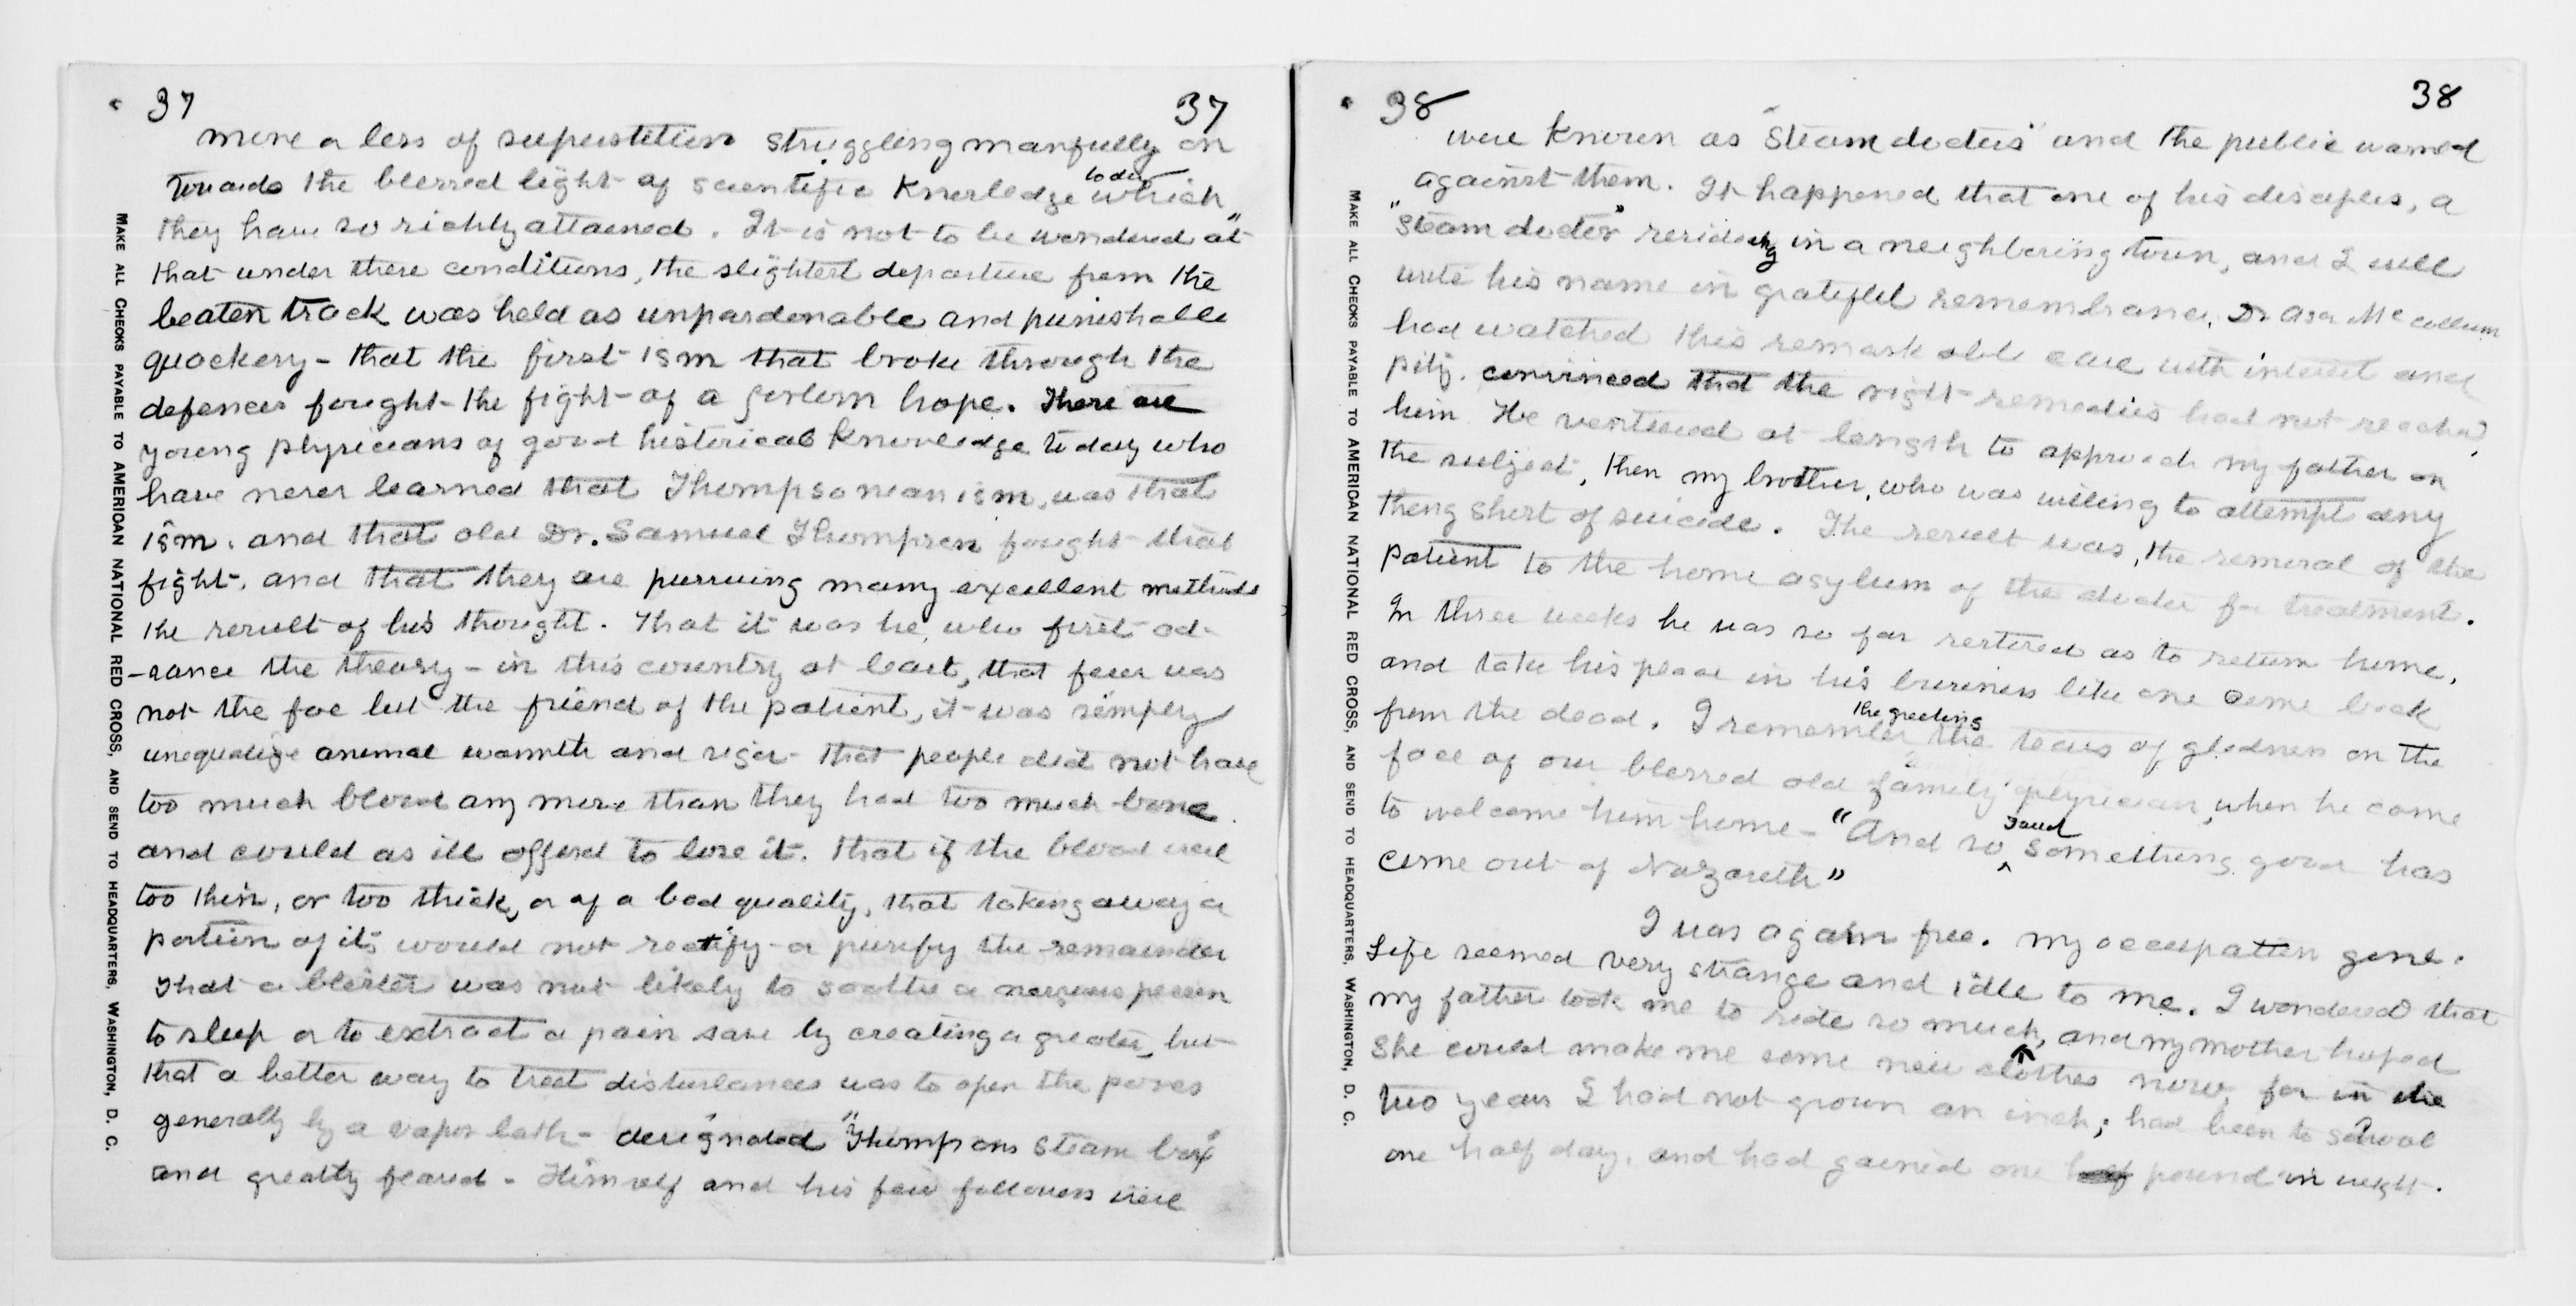 37 37
more or less of superstition struggling manfully on
today
towards the blessed light of scientific knowledge which
they have so richly attained. It is not to be wondered at
that under these conditions, the slightest departure from the
beaten track was held as unpardonable and punishable
quackery - that the first ism that broke through the
defences fought the fight of a forlorn hope. There are
young physicians of good historical knowledge today who
have never learned that Thompsonianism, was that
ism, and that old Dr. Samuel Thompson fought that
fight, and that they are pursuing many excellent methods
the result of his thought. That it was he, who first ad-
-vance the theory - in this country at least, that fever was
not the foe but the friend of the patient, it was simply
unequalize animal warmth and vigor - that people did not have
too much blood any more than they had too much bone
and could as ill afford to lose it. That if the blood were
too thin, or too thick, or of a bad quality, that taking away a
portion of it, would not rectify or purify the remainder
That a blister was not likely to soothe a nervous person
to sleep or to extract a pain save by creating a greater, but
that a better way to treat disturbances was to open the pores
generally by a vapor bath - designated "Thompsons steam box"
and greatly feared - Himself and his few followers were
MAKE ALL CHECKS PAYABLE TO AMERICAN NATIONAL RED CROSS, AND SEND TO HEADQUARTERS, WASHINGTON, D. C.
38 38
were known as "Steam doctors" and the public warned
against them. It happened that one of his disciples, a
"Steam doctor" residing in a neighboring town, and I will
write his name in grateful remembrance, Dr Asa McCullum
had watched this remarkable case with interest and
pity. convinced that the right remedies had not reached
him He ventured at length to approach my father on
the subject, then my brother, who was willing to attempt any
thing short of suicide. The result was, the removal of the
patient to the home asylum of the doctor for treatment.
In three weeks he was so far restored as to return home,
and take his place in his business like one come back
from the dead. I remember
the greeting
the tears of gladness on the
face of our blessed old family physician, when he came
to welcome him home - "And so
said
^
something good has
come out of Nazareth"
I was again free. my occupation gone.
Life seemed very strange and idle to me. I wondered that
my father took me to ride so much, and my mother hoped
she could make me some new clothes now, for in the
two years I had not grown an inch; had been to school
one half day, and had gained one half pound in weight.
MAKE ALL CHECKS PAYABLE TO AMERICAN NATIONAL RED CROSS, AND SEND TO HEADQUARTERS, WASHINGTON, D. C.